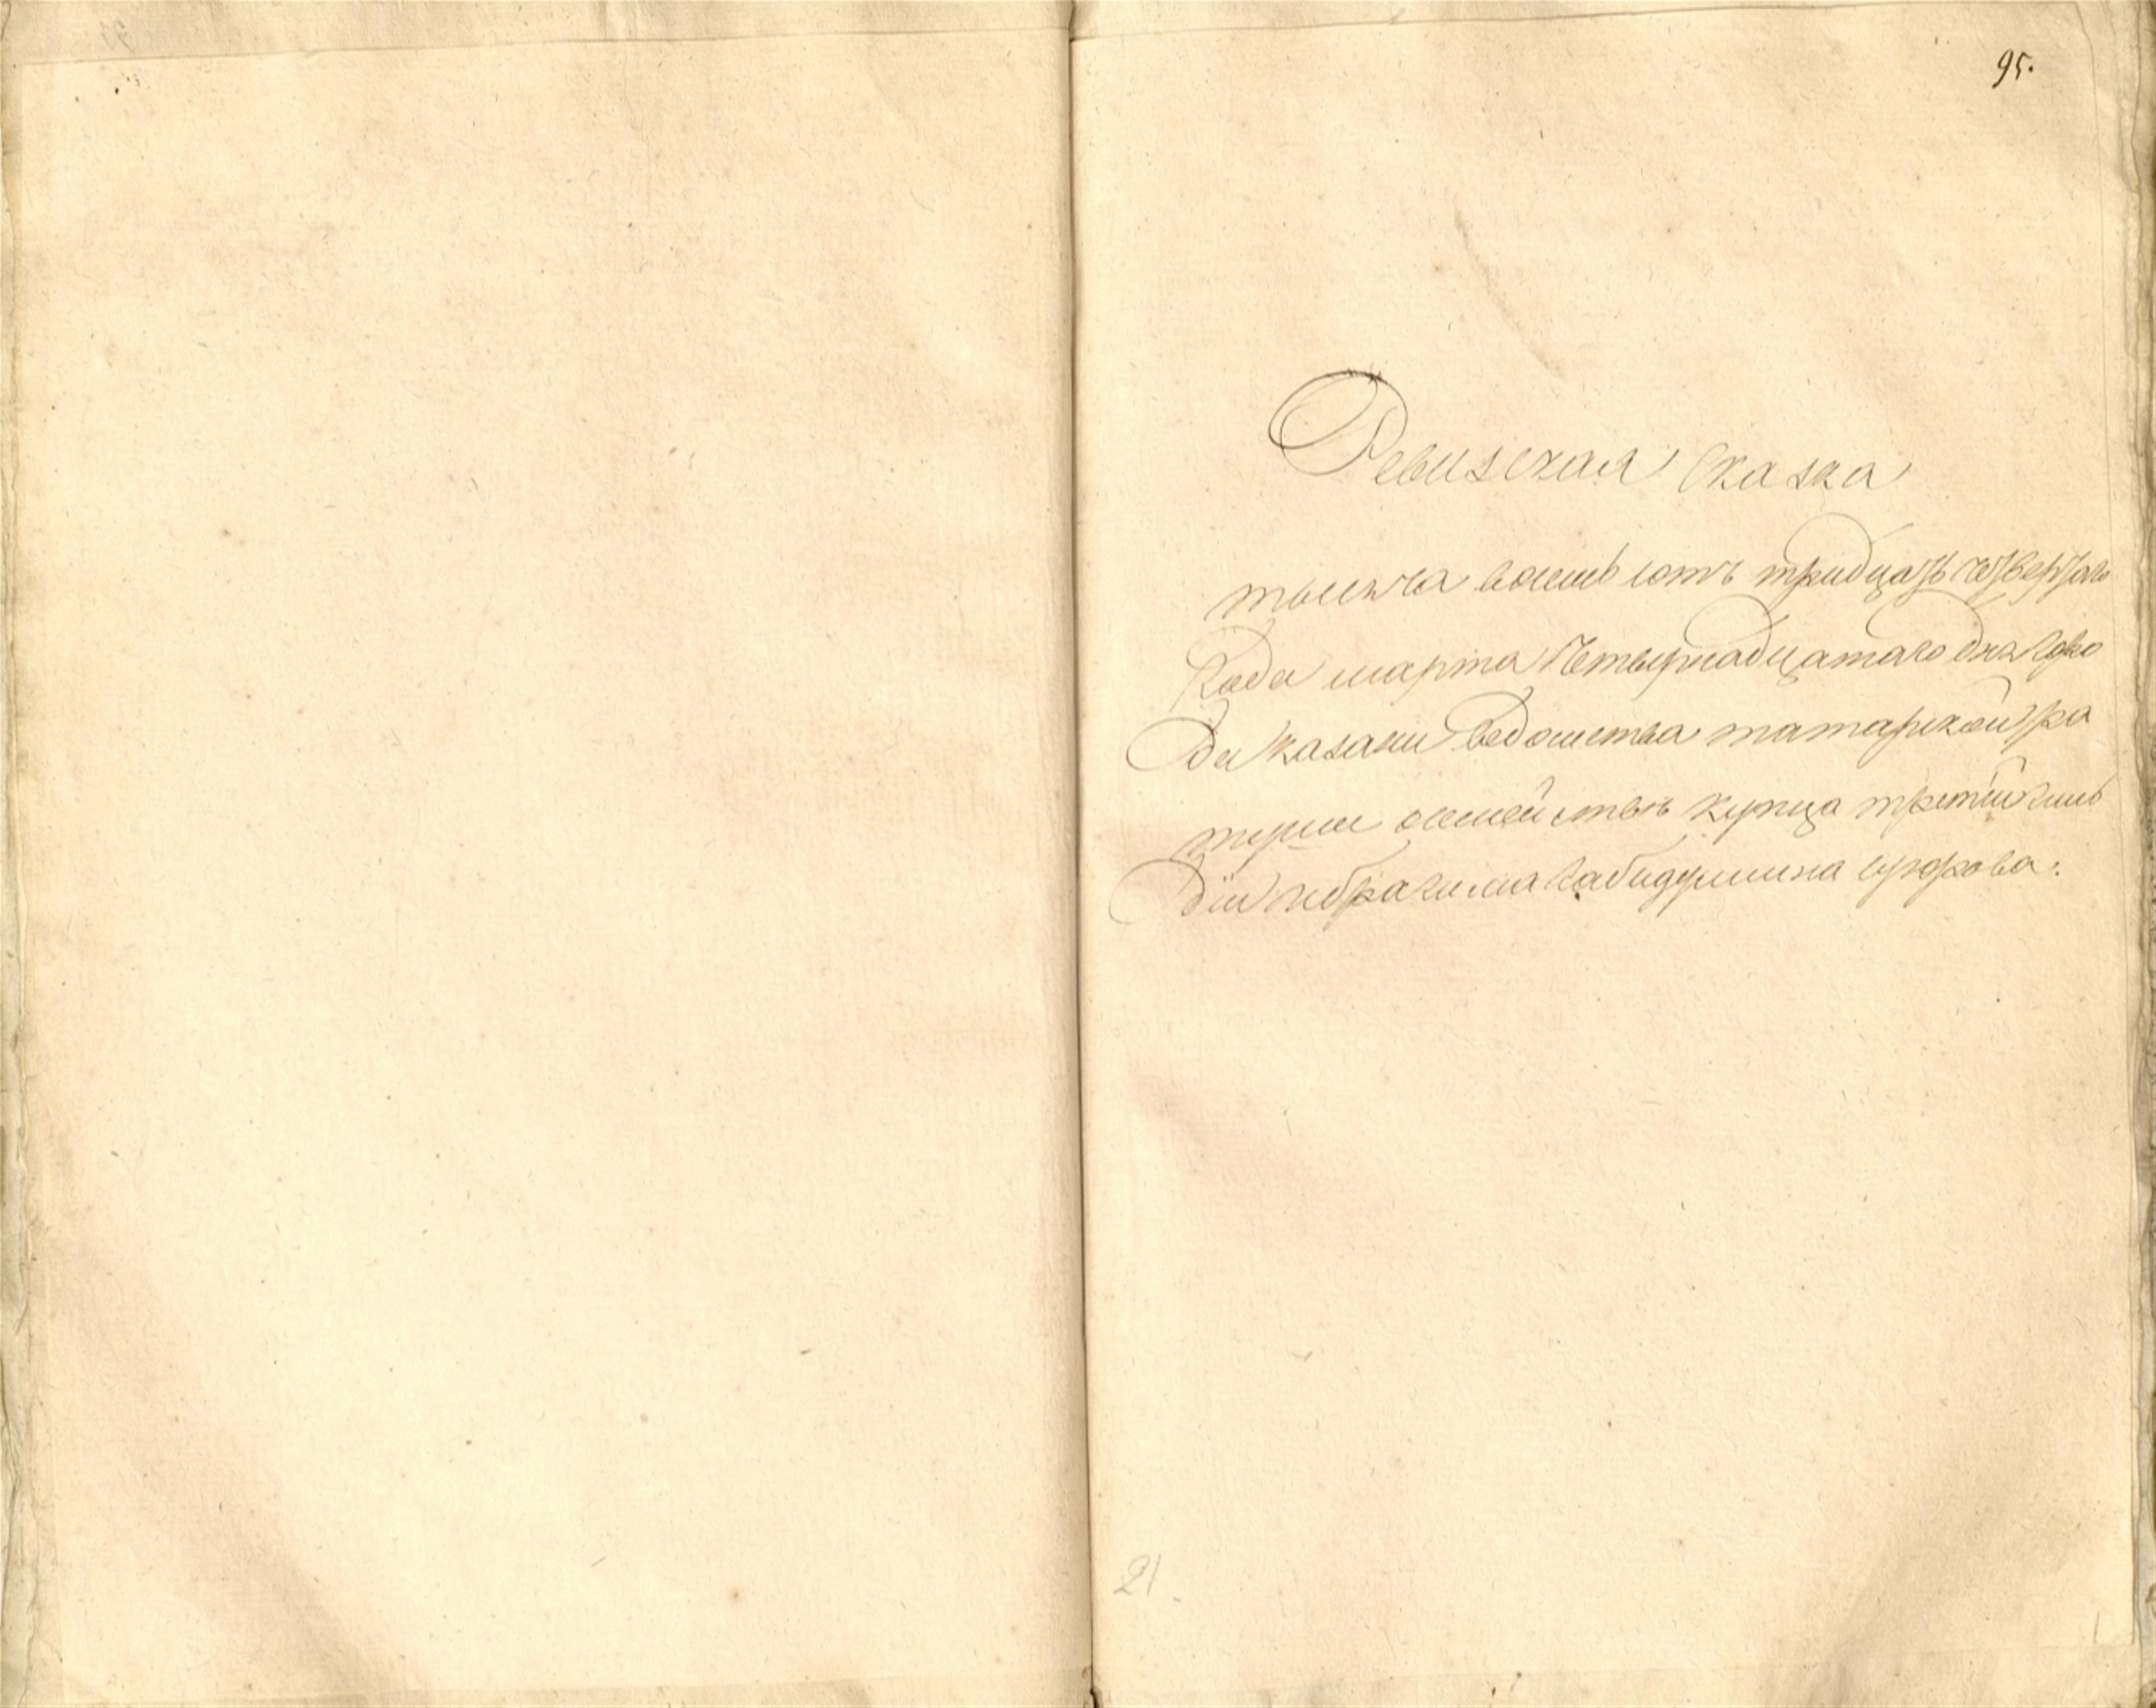 95.
Ревизская Сказка
тысяча восемь сотъ тридцать четвертаго
Года марта Четырнадцатаго дня Горо
да Казани Ведомства татарской ра
туши осемействѣ купца третьей гиль
дiи Ибрагима Габидуллина Юнусова
21